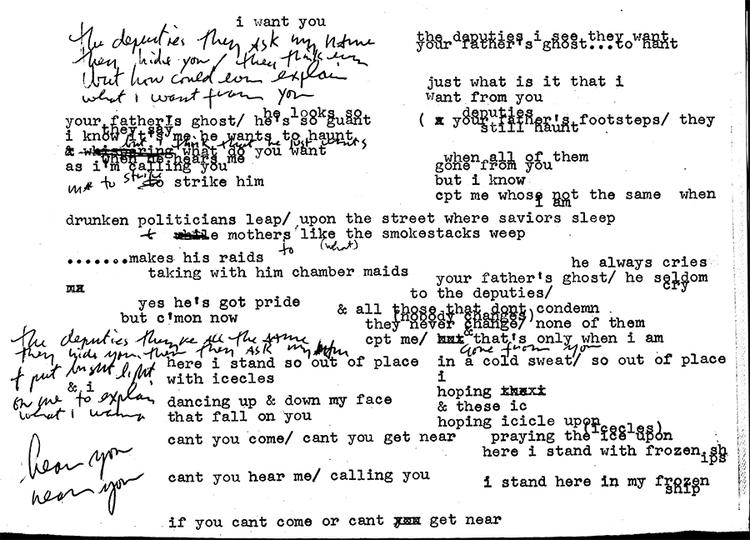 i want you
the deputies they ask my name
they hide you / they think
but how could ever explain
what i want from you
he looks so
your father's ghost/ he's so guant
they say
i know it's me he wants to haunt
but i think that he just wants
& whispering what do you want
when he hears me
as i'm calling you
me to strike
to strike him
drunken politicians leap/ upon the street where saviors sleep
t while mothers like the smokestacks weep
to (what)
.......makes his raids
taking with him chamber maids
mx
yes he's got pride
but c'mon now
the deputies they're all the same
they hide you then they ask my name
& put bright light
& i
on me to explain
what i wanna
here i stand so out of place
with icecles
dancing up & down my face
that fall on you
cant you come/ cant you get near
hear you
near you
cant you hear me/ calling you
if you cant come or cant yxx get near
the deputies i see they want
your father's ghost...to hant
just what is it that i
want from you
deputies
( x your father's footsteps/ they
still haunt
when all of them
gone from you
but i know
cpt me whose not the same when
i am
he always cries
your father's ghost/ he seldom
cry
to the deputies/
& all those that dont condemn
(nobody changes)
they never change/ none of them
&
cpt me/ xxx that's only when i am
gone from you
in a cold sweat/ so out of place
i
hoping thexi
& these ic
hoping icicle upon
(icecles)
praying the ice upon
here i stand with frozen sh
ips
i stand here in my frozen
ship